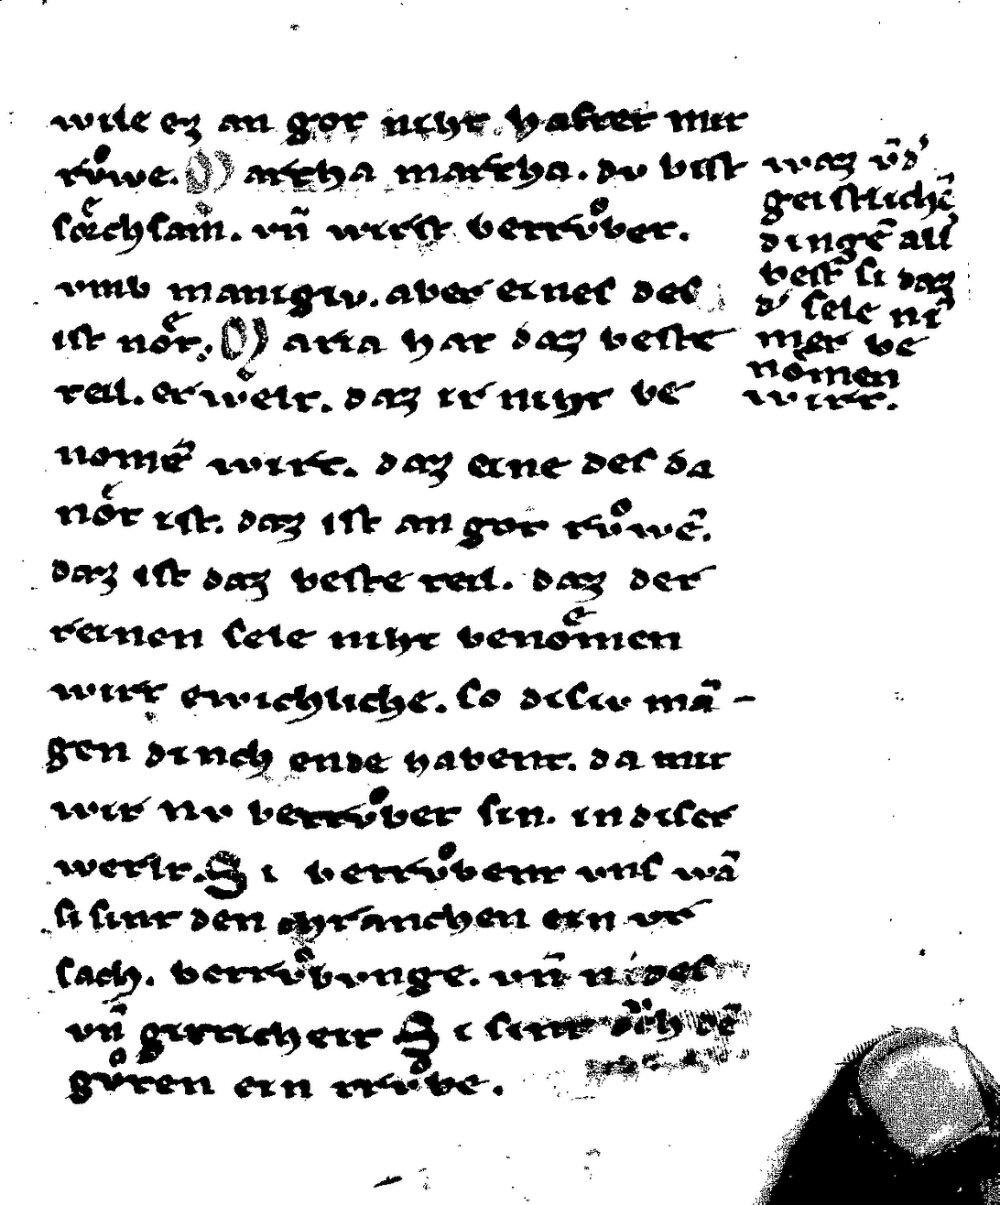 wile ez an got niht haftet mit
růwe. Martha martha. du bist
sͤochsam. vn̄ wirst betrůbet.
vmb manigiu. aber eines des
ist noͤt. Maria hat daz beste
teil. erwelt. daz ir niht be
nomē wirt. daz eine des da
noͤt ist. daz ist an got růwē.
daz ist daz beste teil. daz der
reinen sele niht benoͤmen
wirt ewichliche. so disiu mā-
gen dinch ende habent. da mit
wir nu betrůbet sin. in diser
werlt. Si betrůbent uns wā
si sint den chranchen ein vr
sach. betrůbunge. vn̄ nides
vn̄ gitticheit Si sint dͮch dē
gůten ein trůbe.
waz vn̄d'
geistlichē
dingē all'
best si daz
d' sele ni
mer be
nomen
wirt.